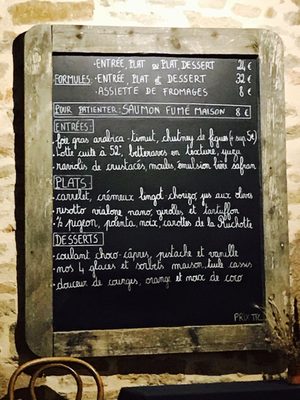 ·ENTRÉE, PLAT ou PLAT, DESSERT 24 €
FORMULES: ·ENTRÉE, PLAT et DESSERT 32 €
·ASSIETTE DE FROMAGES 8 €
POUR PATIENTER: SAUMON FUMÉ MAISON 8 €
ENTRÉES:
·foie gras arabica-timut, chutney de figues (+ sup 5€)
·lotte cuite à 52°, betteraves en texture, yuzu
·raviolis de crustacés, moules, émulsion safran
PLATS:
·carrelet, crémeux lingot chorizo, jus aux olives
·risotto vialone nano, girolles et tartuffon
·pigeon, polenta, noix, carottes de la Ruchotte
DESSERTS
·coulant choco-câpres, pistache et vanille
·nos 4 glaces et sorbets maison, tuile cassis
·douceur de courges, orange et noix de coco
PRIX TTC